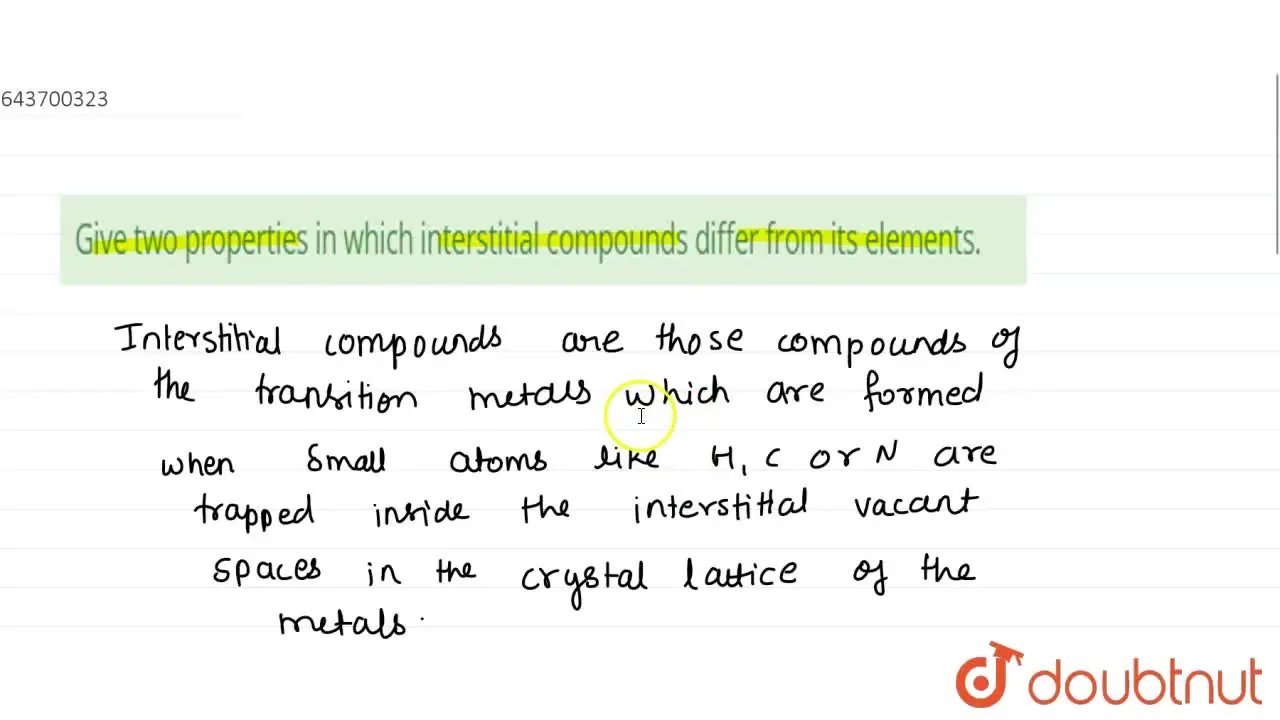 643700323
Give two properties in which interstitial compounds differ from its elements.
Interstitial compounds are those compounds of
the transition metals which are formed
when small atoms like H, C or N are
trapped inside the interstitial vacant
spaces in the crystal lattice of the
metals.
doubtnut